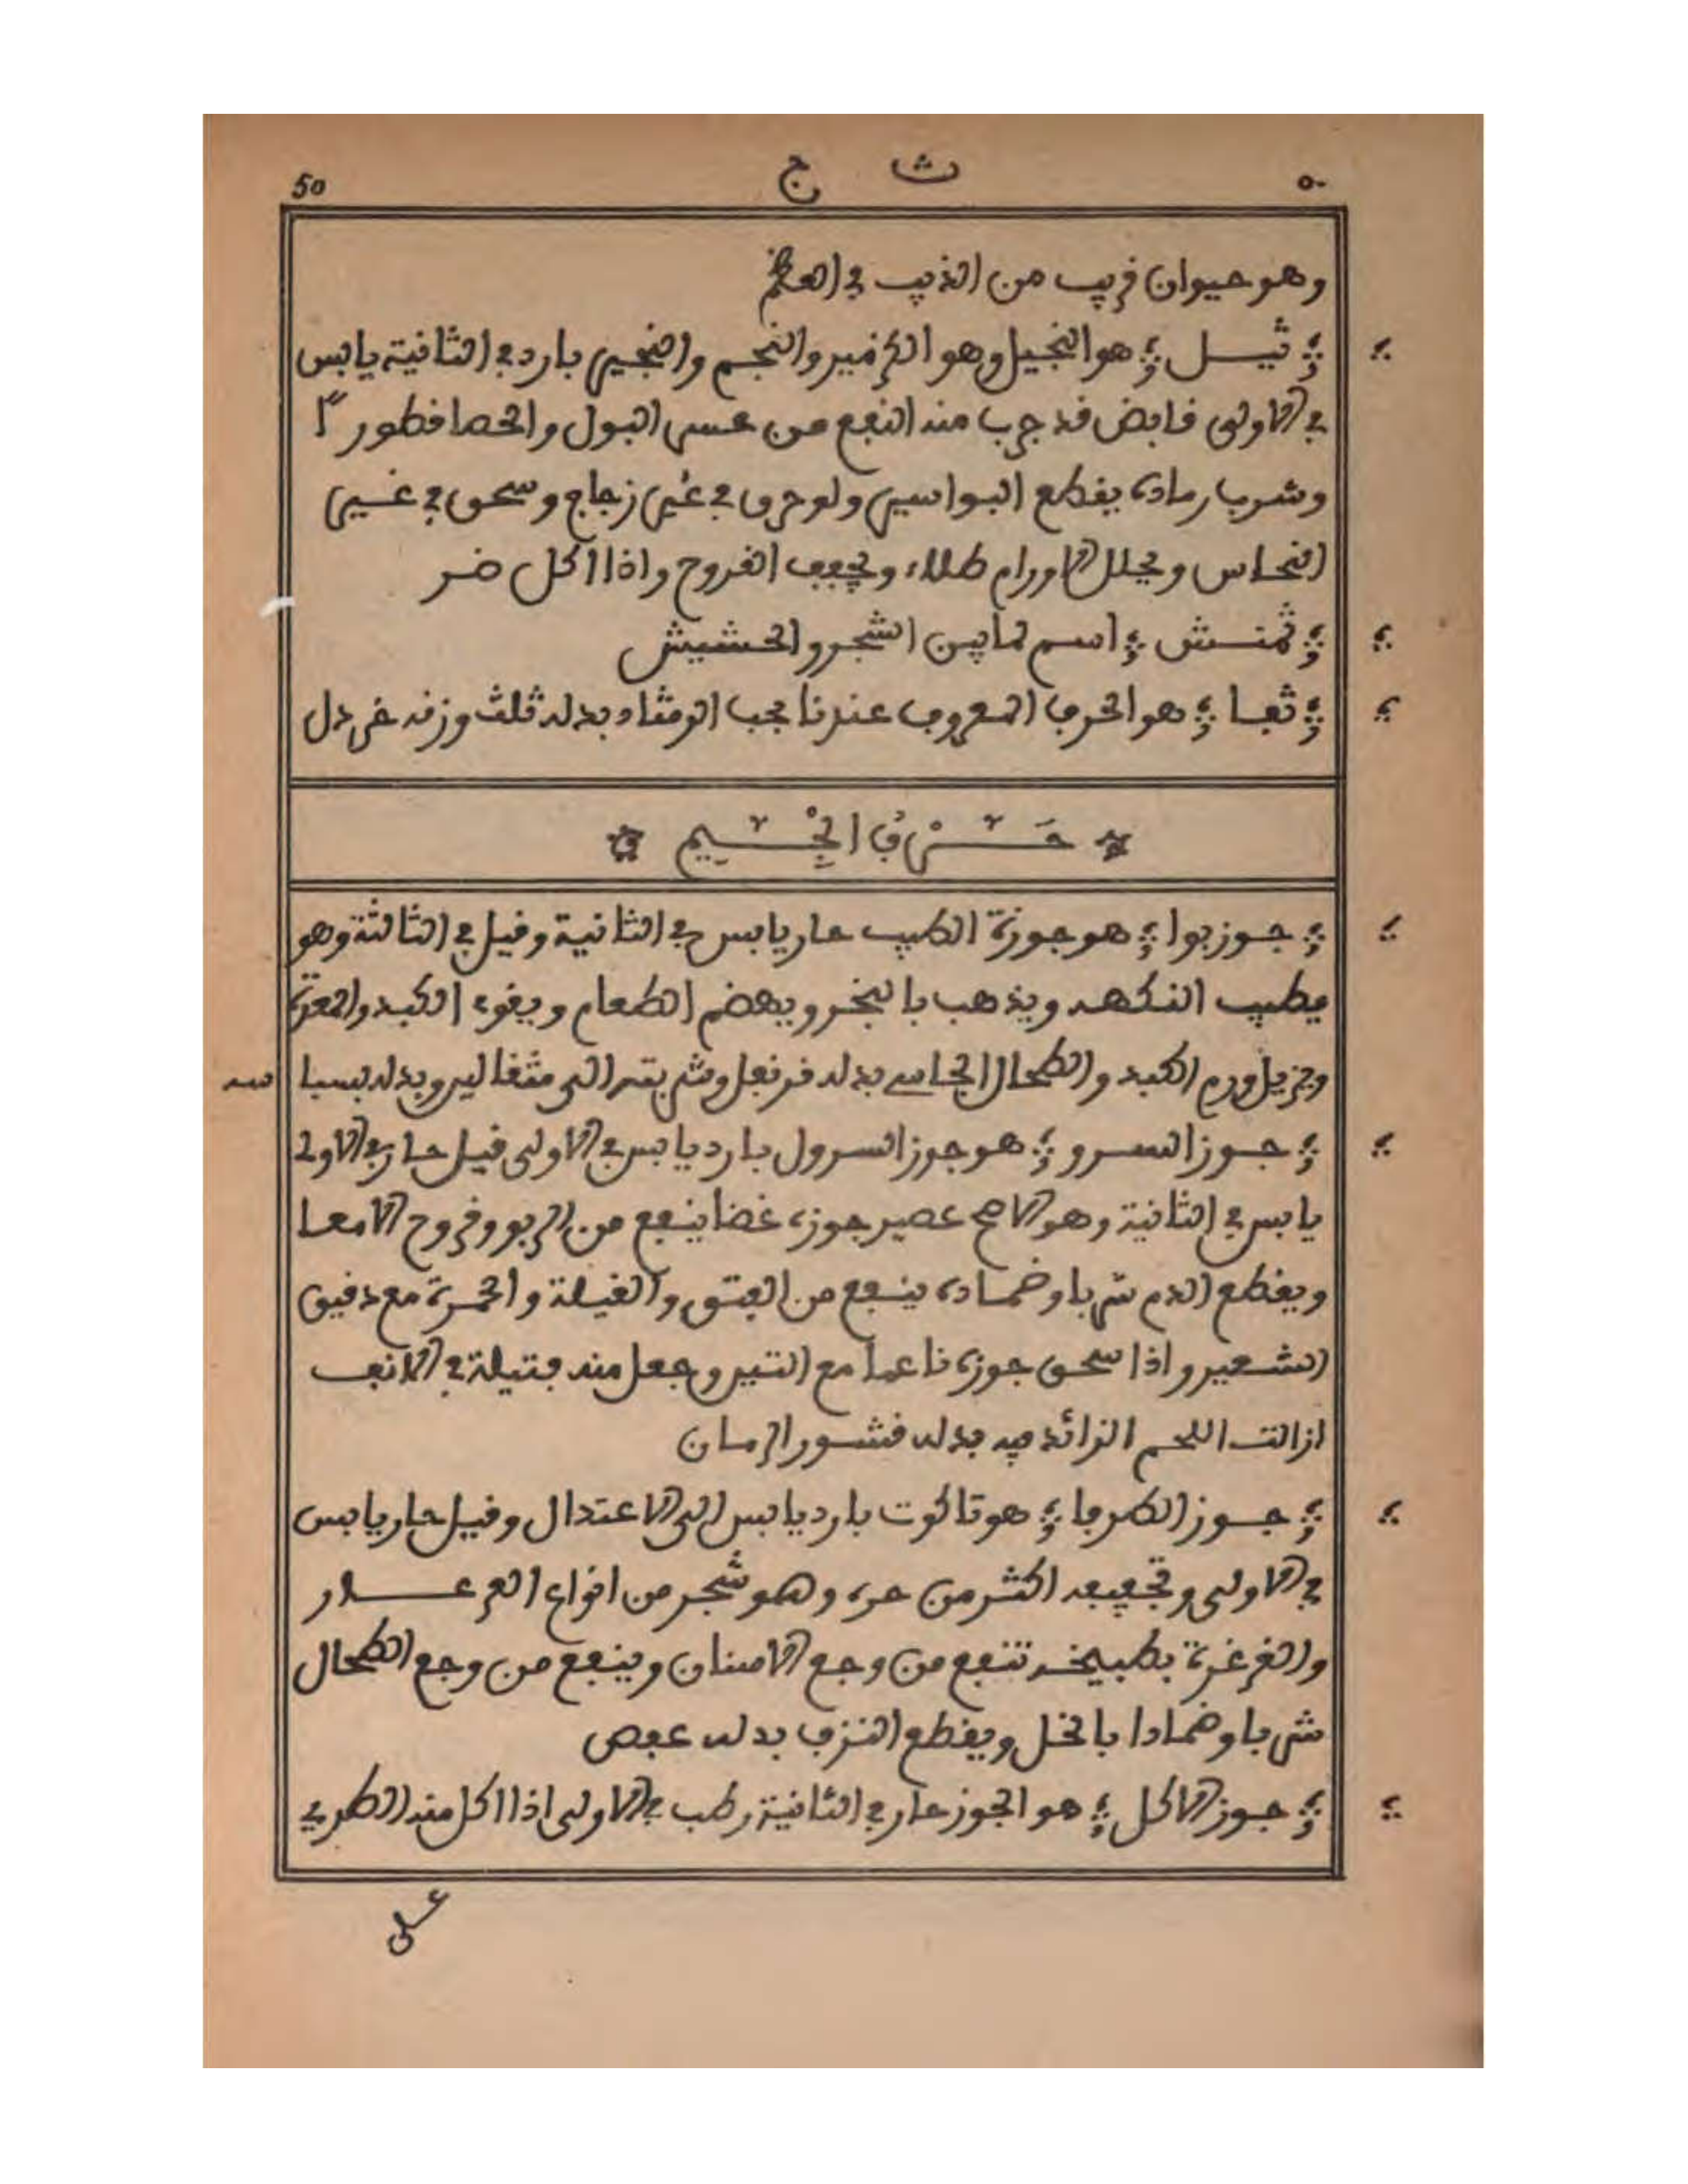 50 ث ج ٥٠
وهو حيوان قريب من الذيب في العظم
ثيل هو النجيل وهو الكزمير والنجم والنجير بارد في الثانية يابس
في الاولى قابض قد جرب منه النفع من عسر البول والحصا فطورًا
وشرب رماده يقطع البواسير ولو حرق في غير زجاج وسحق في غير
النحاس ويحلل الاورام طلاء ويجفف القروح واذا اكل ضر
ثمنش اسم لما بين الشجر والحشيش
ثفا هو الحرف المعروف عندنا بحب الرشاد بدله ثلث وزنه خردل
حَرْفُ الْجِيم
جوزبوا هو جوزة الطيب حار يابس في الثانية وقيل في الثالثة وهو
يطيب النكهه ويذهب بالبخر ويهضم الطعام ويقوي الكبد والمعدة
ويزيل ورم الكبد والطحال الجاسي بدله قرنفل وشربته الى مثقالين وبدله بسباسه
جوز السرو هو جوز السرول بارد يابس في الاولى قيل حار في الاولى
يابس في الثانية وهو الاصح عصير جوزه غضا ينفع من الربو وقروح الامعا
ويقطع الدم شربا وضماده ينفع من الفتق والقيلة والحمرة مع دقيق
الشعير واذا سحق جوزه ناعما مع التين وجعل منه فتيلة في الانف
ازالت اللحم الزائد فيه بدله قشور الرمان
جوز الطرفا هو تاكوت بارد يابس الى الاعتدال وقيل حار يابس
في الاولى وتجفيفه اكثر من حره وهو شجر من انواع العرعار
والغرغرة بطبيخه تنفع من وجع الاسنان وينفع من وجع الطحال
شربا وضمادا بالخل ويقطع النزف بدله عفص
جوز الاكل هو الجوز حار في الثانية رطب في الاولى اذا اكل منه الطري
على